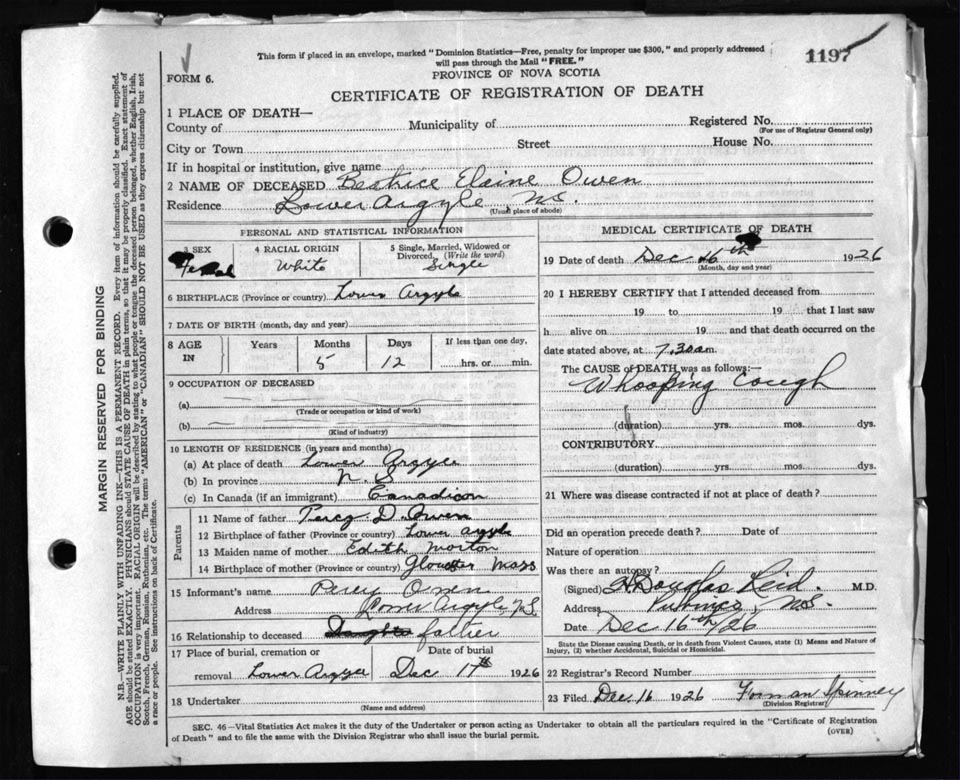 This form if placed in an envelope, marked "Dominion Statistics—Free, penalty for improper use $300," and properly addressed
will pass through the Mail "FREE."
1197
PROVINCE OF NOVA SCOTIA
FORM 6.
CERTIFICATE OF REGISTRATION OF DEATH
1 PLACE OF DEATH—
County of Municipality of Registered No.
(For use of Registrar General only)
City or Town Street House No.
If in hospital or institution, give name
2 NAME OF DECEASED Beatrice Elaine Owen
Residence Lower Argyle, N.S.
(Usual place of abode)
PERSONAL AND STATISTICAL INFORMATION
3 SEX 4 RACIAL ORIGIN 5 Single, Married, Widowed or
Divorced. (Write the word)
White Single
6 BIRTHPLACE (Province or country) Lower Argyle
7 DATE OF BIRTH (month, day and year)
8 AGE IN Years Months Days If less than one day,
5 12 hrs. or min.
9 OCCUPATION OF DECEASED
(a)
(Trade or occupation or kind of work)
(b)
(Kind of industry)
10 LENGTH OF RESIDENCE (in years and months)
(a) At place of death Lower Argyle
(b) In province N.S
(c) In Canada (if an immigrant) Canadian
Parents
11 Name of father Percy D. Owen
12 Birthplace of father (Province or country) Lower Argyle
13 Maiden name of mother Edith Morton
14 Birthplace of mother (Province or country) Gloucester Mass
15 Informant's name Percy Owen
Address Lower Argyle N.S
16 Relationship to deceased father
17 Place of burial, cremation or Date of burial
removal Lower Argyle Dec 17th 1926
18 Undertaker
(Name and address)
MEDICAL CERTIFICATE OF DEATH
19 Date of death Dec 16th 1926
(Month, day and year)
20 I HEREBY CERTIFY that I attended deceased from
19 to 19 that I last saw
h alive on 19 and that death occurred on
date stated above, at 7.30 a.m.
The CAUSE of DEATH was as follows:—
Whooping Cough
(duration) yrs. mos. dys.
CONTRIBUTORY
(duration) yrs. mos. dys.
21 Where was disease contracted if not at place of death?
Did an operation precede death? Date of
Nature of operation
Was there an autopsy?
(Signed) Douglas Reid M.D.
Address N.S.
Date Dec 16th/26
State the Disease causing Death, or in death from Violent Causes, state (1) Means and Nature of
Injury, (2) whether Accidental, Suicidal or Homicidal.
22 Registrar's Record Number
23 Filed Dec. 16 1926 Forman Spinney
(Division Registrar)
SEC. 46—Vital Statistics Act makes it the duty of the Undertaker or person acting as Undertaker to obtain all the particulars required in the "Certificate of Registration
of Death" and to file the same with the Division Registrar who shall issue the burial permit.
(OVER)
MARGIN RESERVED FOR BINDING
N.B.—WRITE PLAINLY WITH UNFADING INK—THIS IS A PERMANENT RECORD. Every item of information should be carefully supplied.
AGE should be stated EXACTLY. PHYSICIANS should STATE CAUSE OF DEATH in plain terms, so that it may be properly classified. Exact statement of
OCCUPATION is very important. RACIAL ORIGIN will be described by stating to what people or tongue the deceased person belonged, whether English, Irish,
Scotch, French, German, Russian, Ruthenian, etc. The terms "AMERICAN" or "CANADIAN" SHOULD NOT BE USED as they express citizenship but not
a race or people. See instructions on back of Certificate.